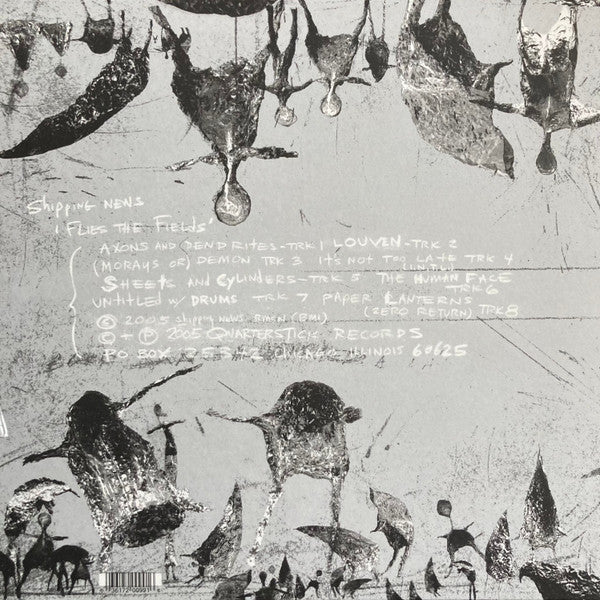 Shipping News
'Flies the Fields'
Axons and Dendrites - TRK 1 Louven - TRK 2
(Morays or) Demon TRK 3 It's Not Too Late TRK 4
Sheets and Cylinders - TRK 5 The Human Face
TRK 6
Untitled w/ Drums TRK 7 Paper Lanterns
(Zero Return) TRK 8
© 2005 Shipping News (BMI)
© + ℗ 2005 Quarterstick Records
PO Box 25342 Chicago, Illinois 60625